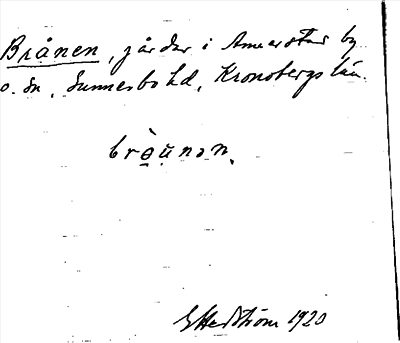 Brånen, gårdar i Annerstad by
o. sn, Sunnerbo hd, Kronobergs län.
brə̀ŭnən.
G Hedström 1920